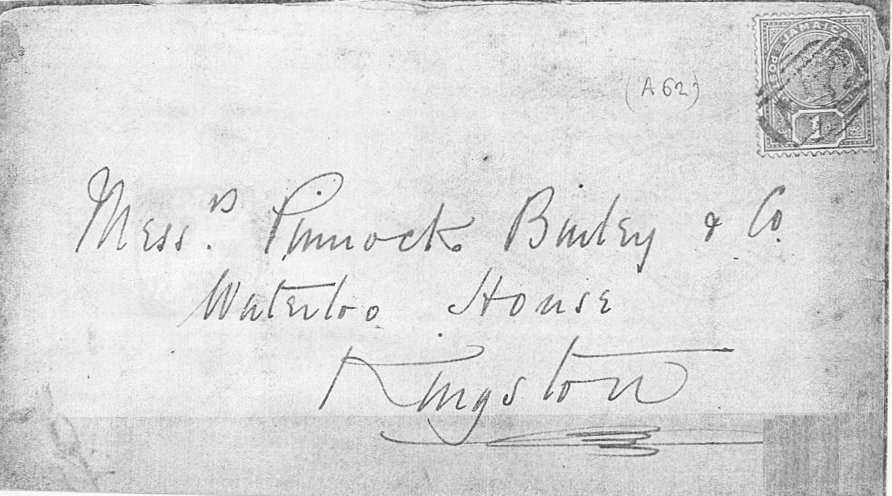 JAMAICA
1
(A 62)
Mess.rs Pinnock Bailey & Co.
Waterloo House
Kingston